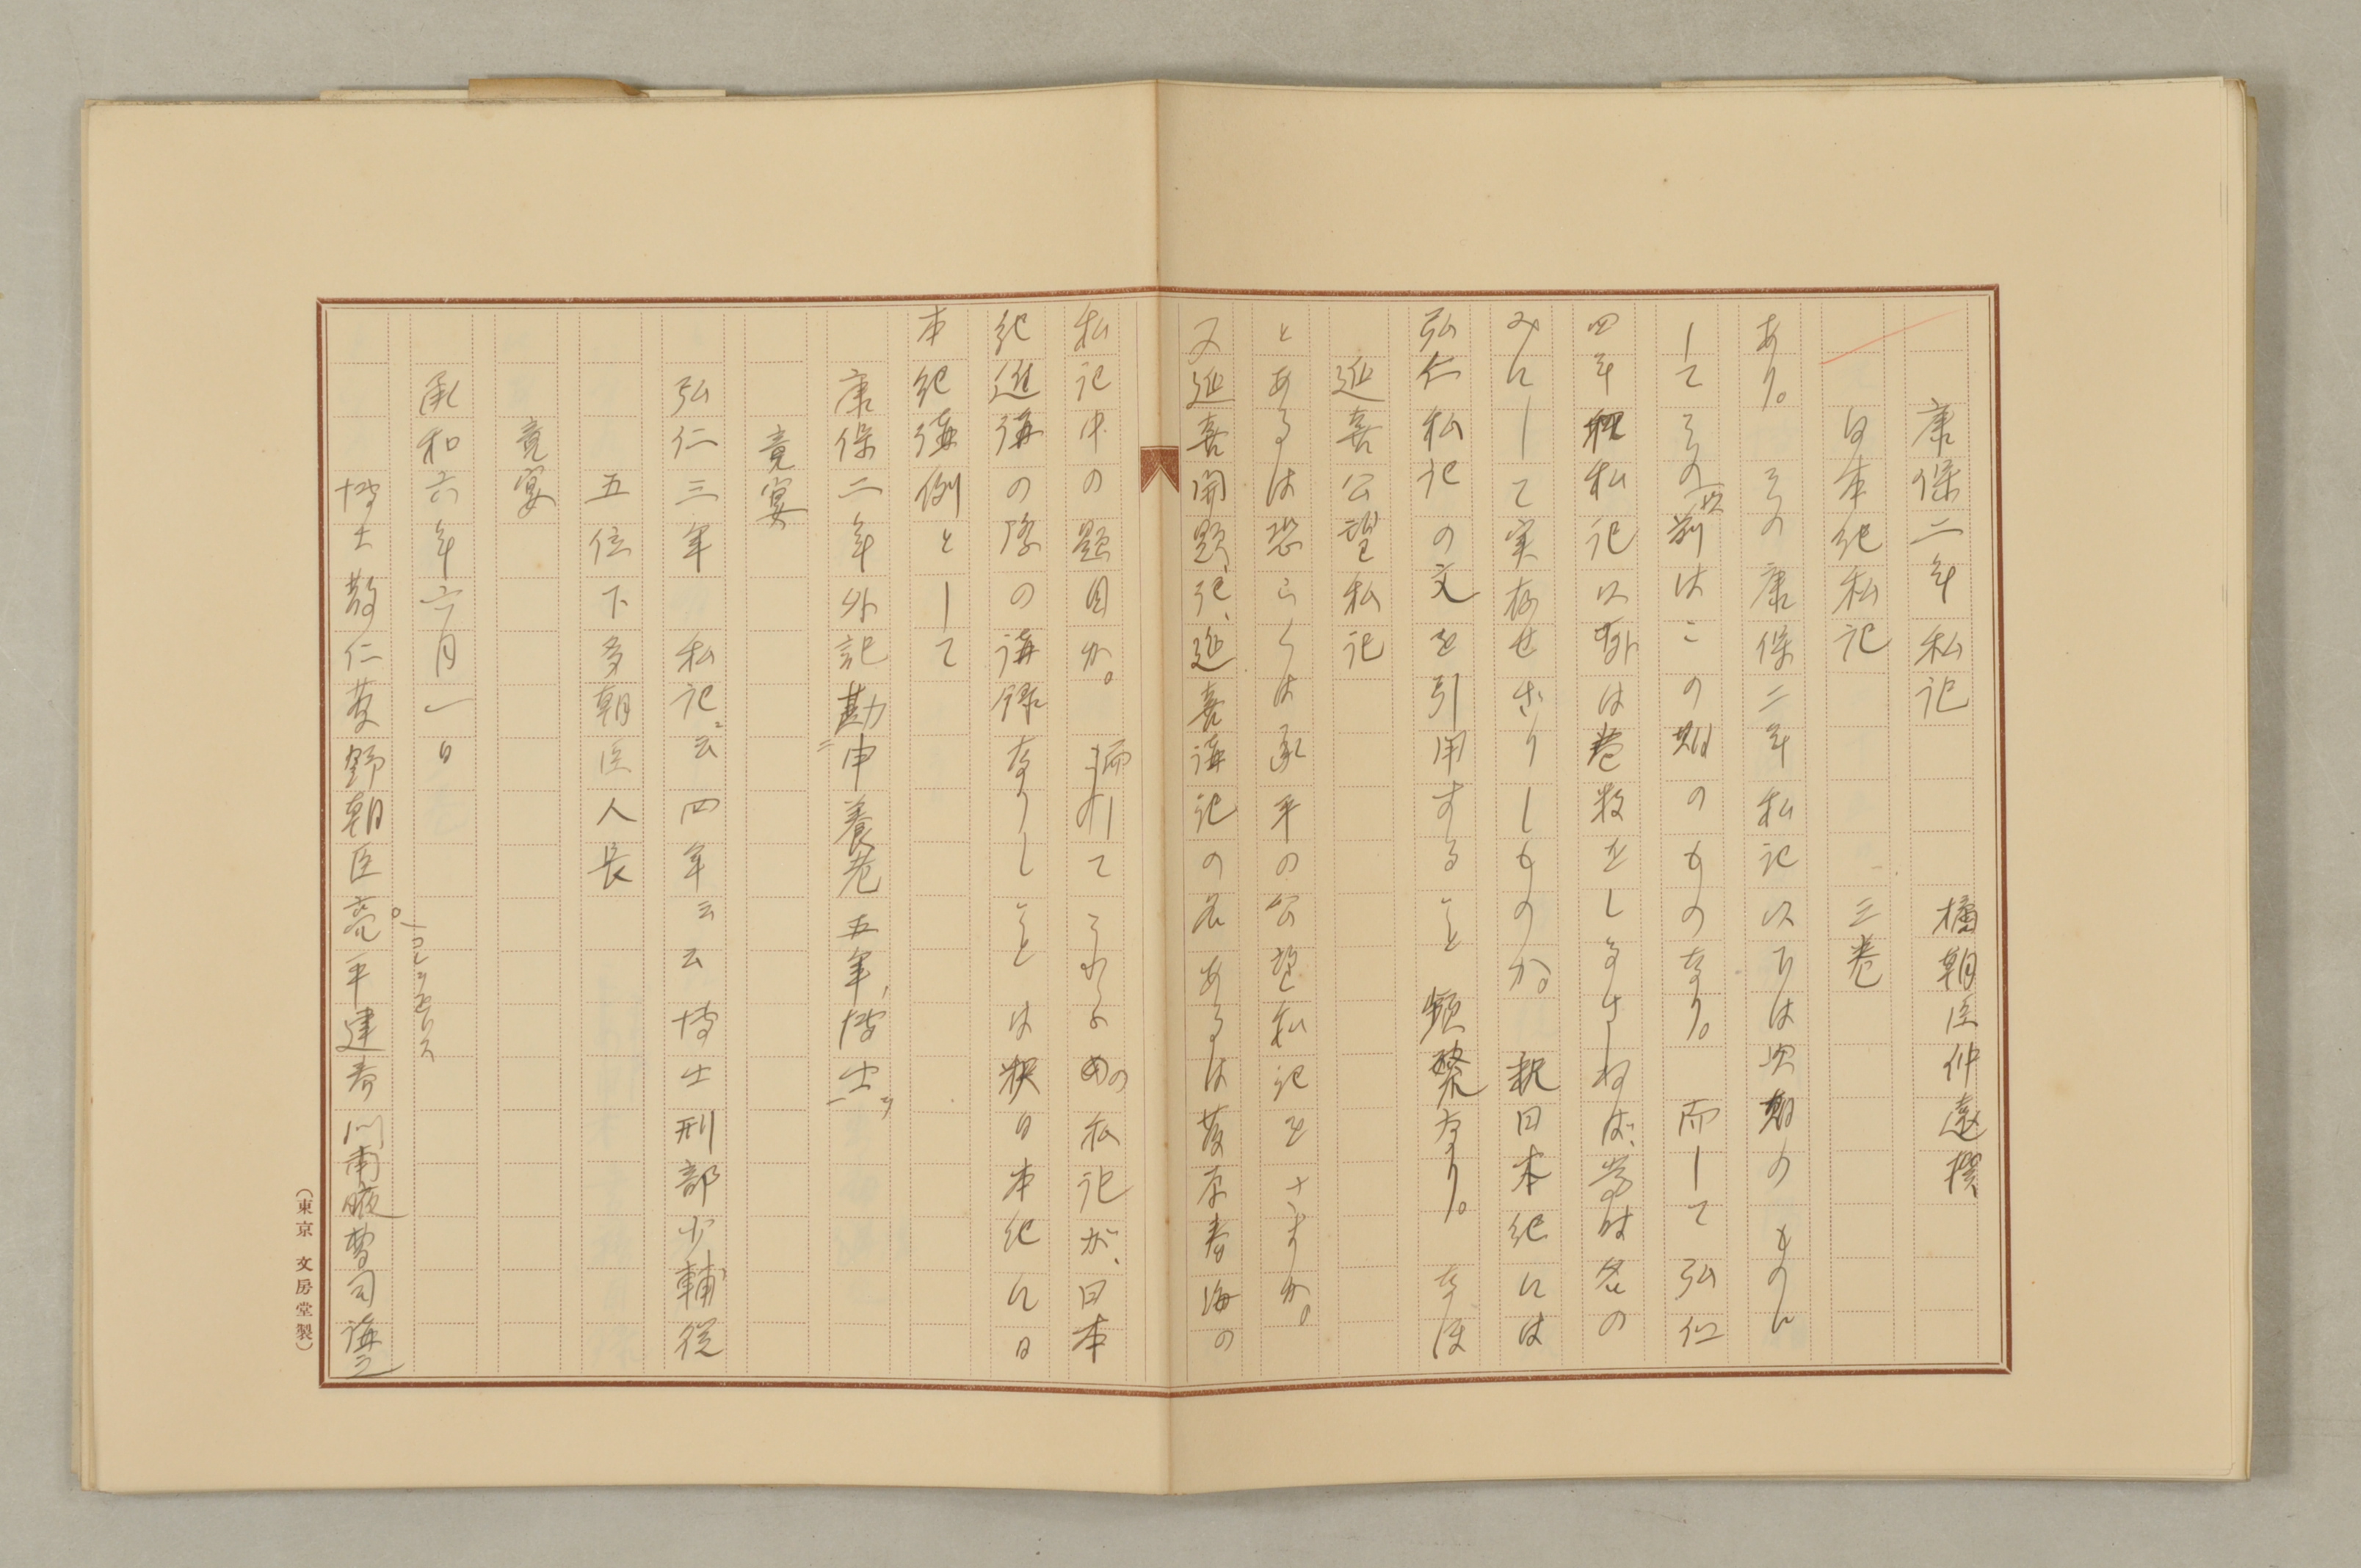 康保二年私記　橘朝臣仲遠撰
日本紀私記　三巻
あり。その康保二年私記以下は次期のものに
してその以前はこの期のものなり。而して弘仁
四年私記以外は巻数をしるさゞれば、当時名の
みにして実存せざりしものか。釈日本紀には
弘仁私記の文を引用すること頻繁なり。なほ
延喜公望私記
とあるは恐らくは承平の公望私記をさすか。
又延喜開題記、延喜講記の名あるは藤原春海の
私記中の題目か。而してこれらの私記が、日本
紀進講の際の講録なりしことは釈日本紀に日
本紀講例として
康保二年外記勘申養老五年、博士
竟宴
弘仁三年　私記云四年云云博士刑部少輔従
五位下多朝臣人長
竟宴
承和六年六月一日
博士散仁菅野朝臣高平建春門南腋曹司講之
（東京　文房堂製）